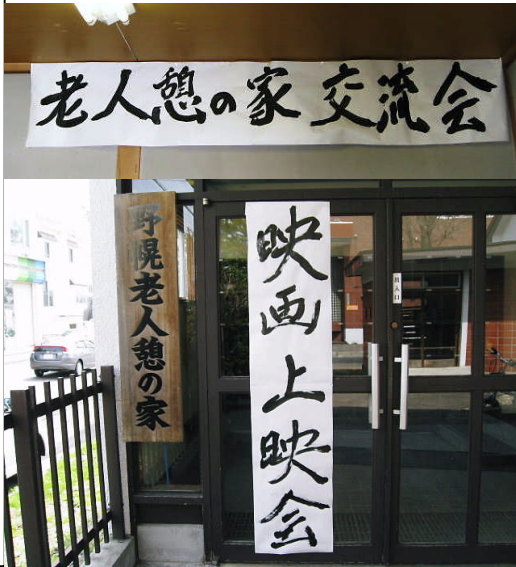 老人憩の家 交流会
野幌老人憩の家
映画上映会
出入口